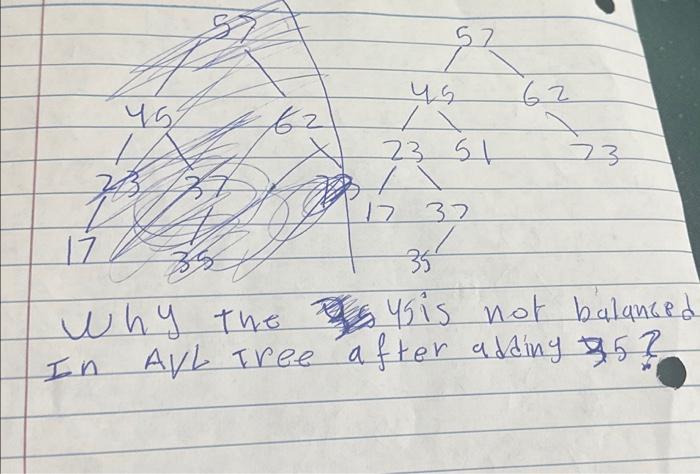 57 57
45 62 45 62
23 37 23 51 73
17 35 17 37
35
Why the 45 is not balanced
In AVL Tree after adding 35?